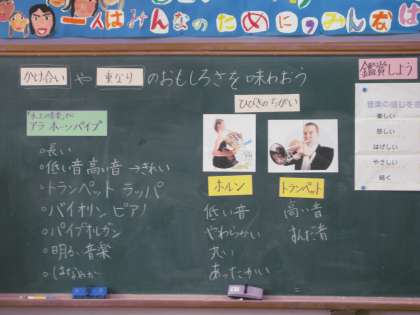 一人はみんなのためにみんなは
かけ合い や 重なり のおもしろさを味わおう
鑑賞しよう
ひびきのちがい
音楽の感じを
楽しい
悲しい
はげしい
やさしい
軽く
「水上の音楽」から
アラ ホーンパイプ
○長い
○低い音高い音→きれい
○トランペット ラッパ
○バイオリン ピアノ
○パイプオルガン
○明るい音楽
○はなやか
ホルン
低い音
やわらかい
丸い
あったかい
トランペット
高い音
すんだ音